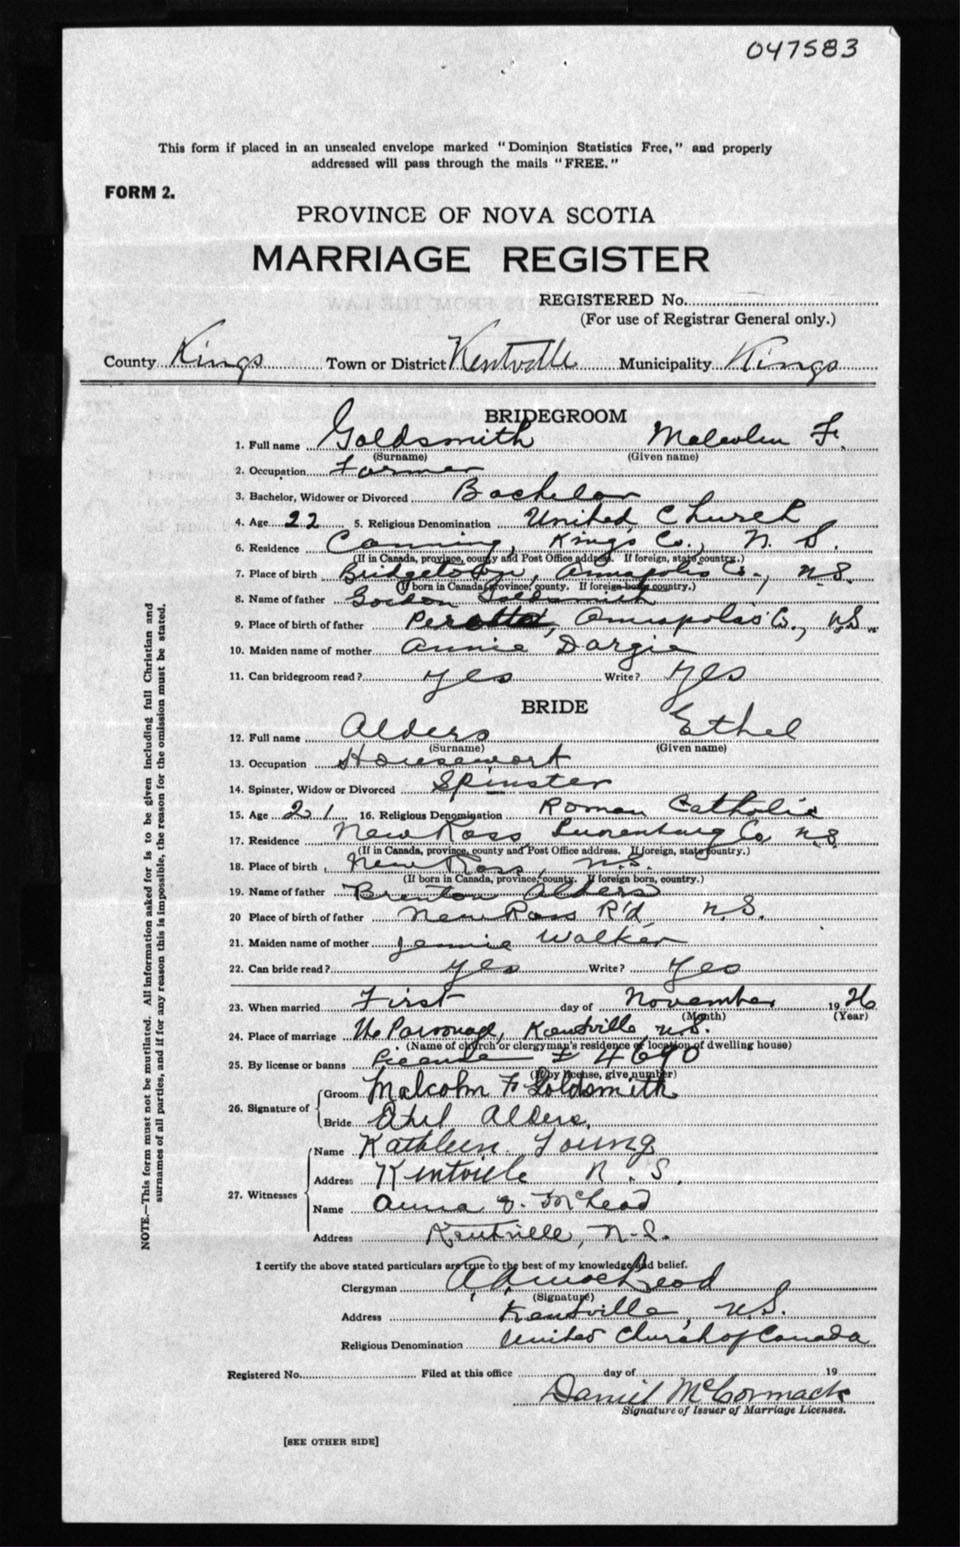 047583
This form if placed in an unsealed envelope marked "Dominion Statistics Free," and properly
addressed will pass through the mails "FREE."
FORM 2.
PROVINCE OF NOVA SCOTIA
MARRIAGE REGISTER
REGISTERED No.
(For use of Registrar General only.)
County Kings Town or District Kentville Municipality Kings
BRIDEGROOM
1. Full name Goldsmith Malcolm F.
(Surname) (Given name)
2. Occupation Farmer
3. Bachelor, Widower or Divorced Bachelor
4. Age 22 5. Religious Denomination United Church
6. Residence Canning, King's Co., N. S.
(If in Canada, province, county and Post Office address. If foreign, state country.)
7. Place of birth Bridgetown, Annapolis Co., N.S.
(If born in Canada, province, county. If foreign born country.)
8. Name of father Gordon Goldsmith
9. Place of birth of father Perotte, Annapolis Co., N.S.
10. Maiden name of mother Annie Dargie
11. Can bridegroom read? yes Write? yes
BRIDE
12. Full name Alders Ethel
(Surname) (Given name)
13. Occupation Housework
14. Spinster, Widow or Divorced Spinster
15. Age 21 16. Religious Denomination Roman Catholic
17. Residence New Ross Lunenburg Co N.S.
(If in Canada, province, county and Post Office address. If foreign, state country.)
18. Place of birth New Ross, N.S.
(If born in Canada, province, county. If foreign born, country.)
19. Name of father Brenton Alders
20 Place of birth of father New Ross R'd, N.S.
21. Maiden name of mother Jennie Walker
22. Can bride read? yes Write? yes
23. When married First day of November 1926
(Month) (Year)
24. Place of marriage Parsonage, Kentville N.S.
(Name of church or clergyman's residence or location of dwelling house)
25. By license or banns License # 4690
(If by license, give number)
26. Signature of
Groom Malcolm F Goldsmith
Bride Ethel Alders.
27. Witnesses
Name Kathleen Young
Address Kentville N. S.
Name Anna McLeod
Address Kentville, N.S.
I certify the above stated particulars are true to the best of my knowledge and belief.
Clergyman
(Signature)
Address Kentville, N.S.
Religious Denomination United Church of Canada
Registered No. Filed at this office day of 19
Daniel McCormack
Signature of Issuer of Marriage Licenses.
[SEE OTHER SIDE]
NOTE.—This form must not be mutilated. All information asked for is to be given including full Christian and
surnames of all parties, and if for any reason this is impossible, the reason for the omission must be stated.